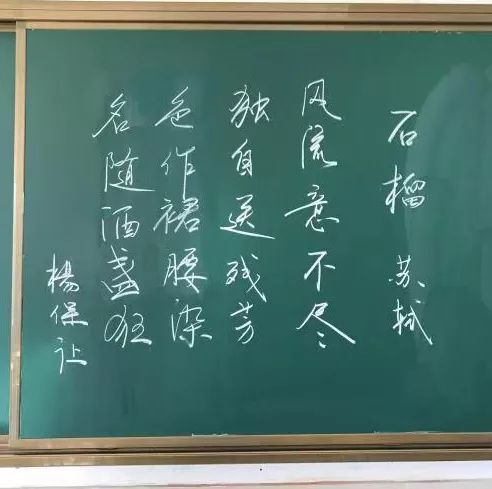 石榴 苏轼
风流意不尽
独自送残芳
色作裙腰染
名随酒盏狂
杨保让